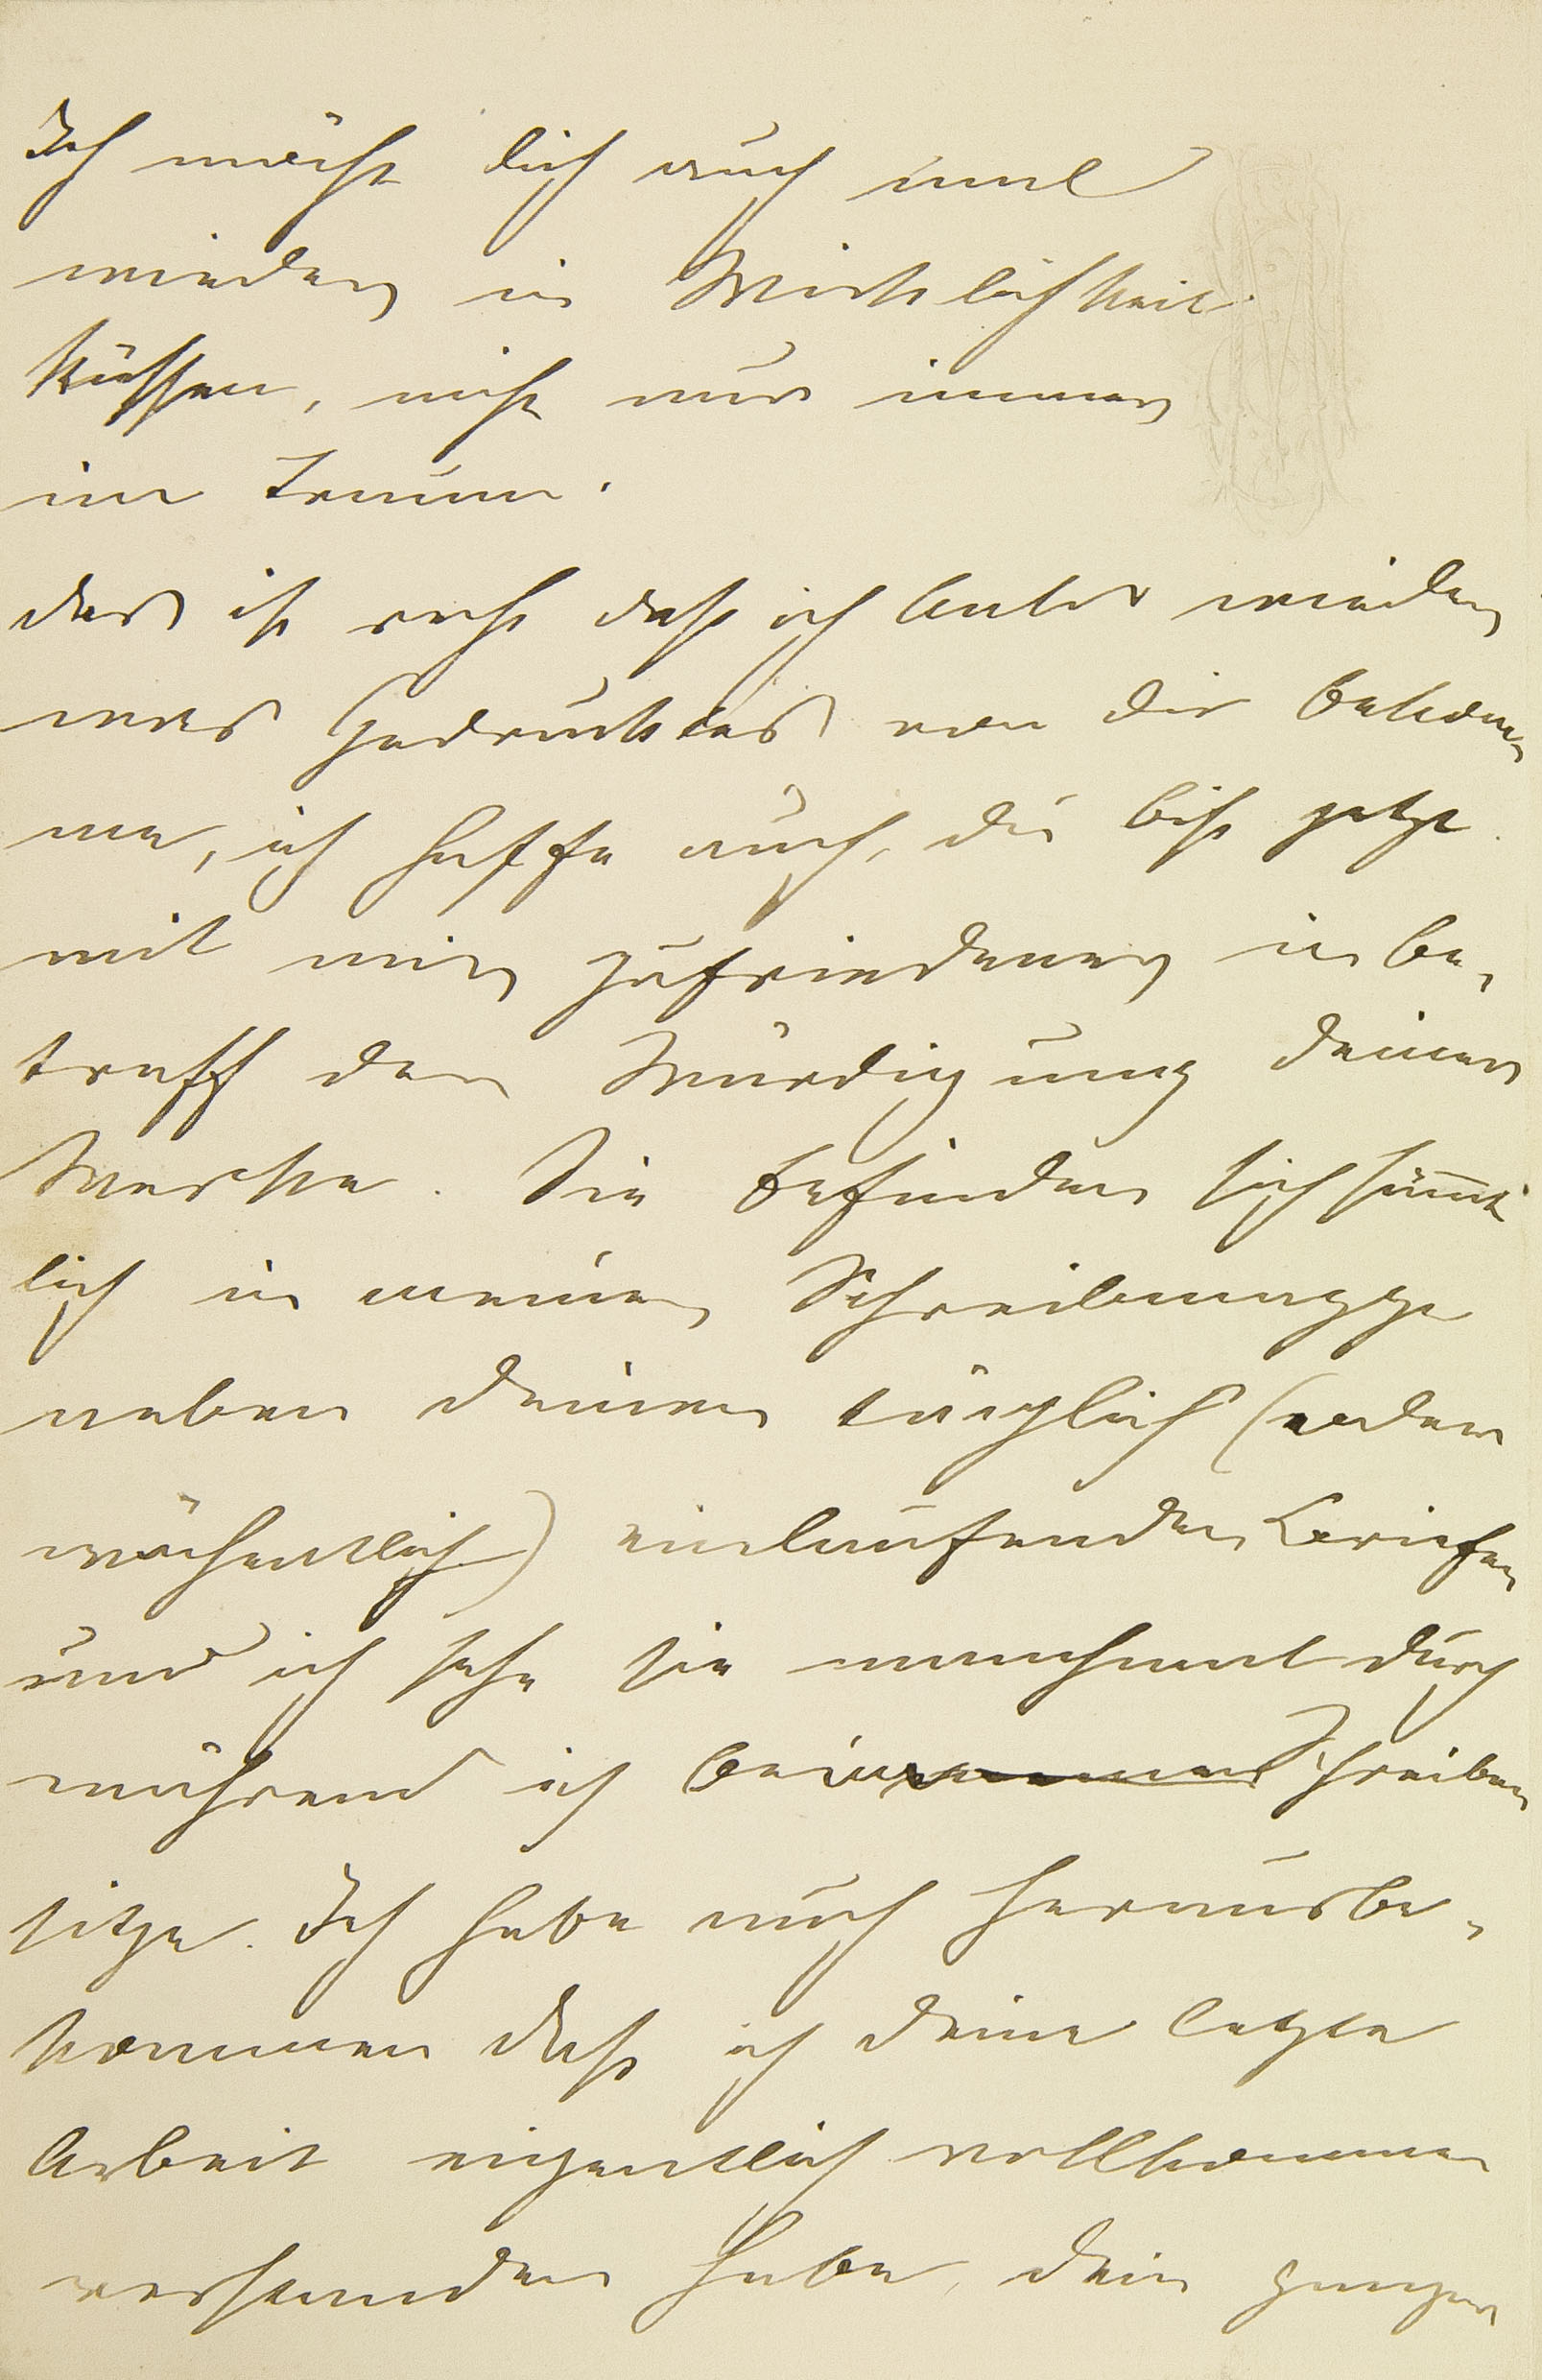 Ich möcht dich auch mal
wieder in Wirklichkeit
küssen, nicht nur immer
im Traum.
das ist recht dass ich bald wieder
was Gedrucktes von dir bekom-
me, ich hoffe auch, du bist jetzt
mit mir zufriedener in be-
treff der Würdigung deiner
Werke. Sie befinden sich sämt
lich in meiner Schreibmappe
neben deinen täglich (oder
wöchentlich) einlaufenden Briefen
und ich sehe sie manchmal durch
während ich beim Schreiben
sitze. Ich habe auch herausbe-
kommen dass ich deine letzte
Arbeit eigentlich vollkommen
verstanden habe, dein ganzer